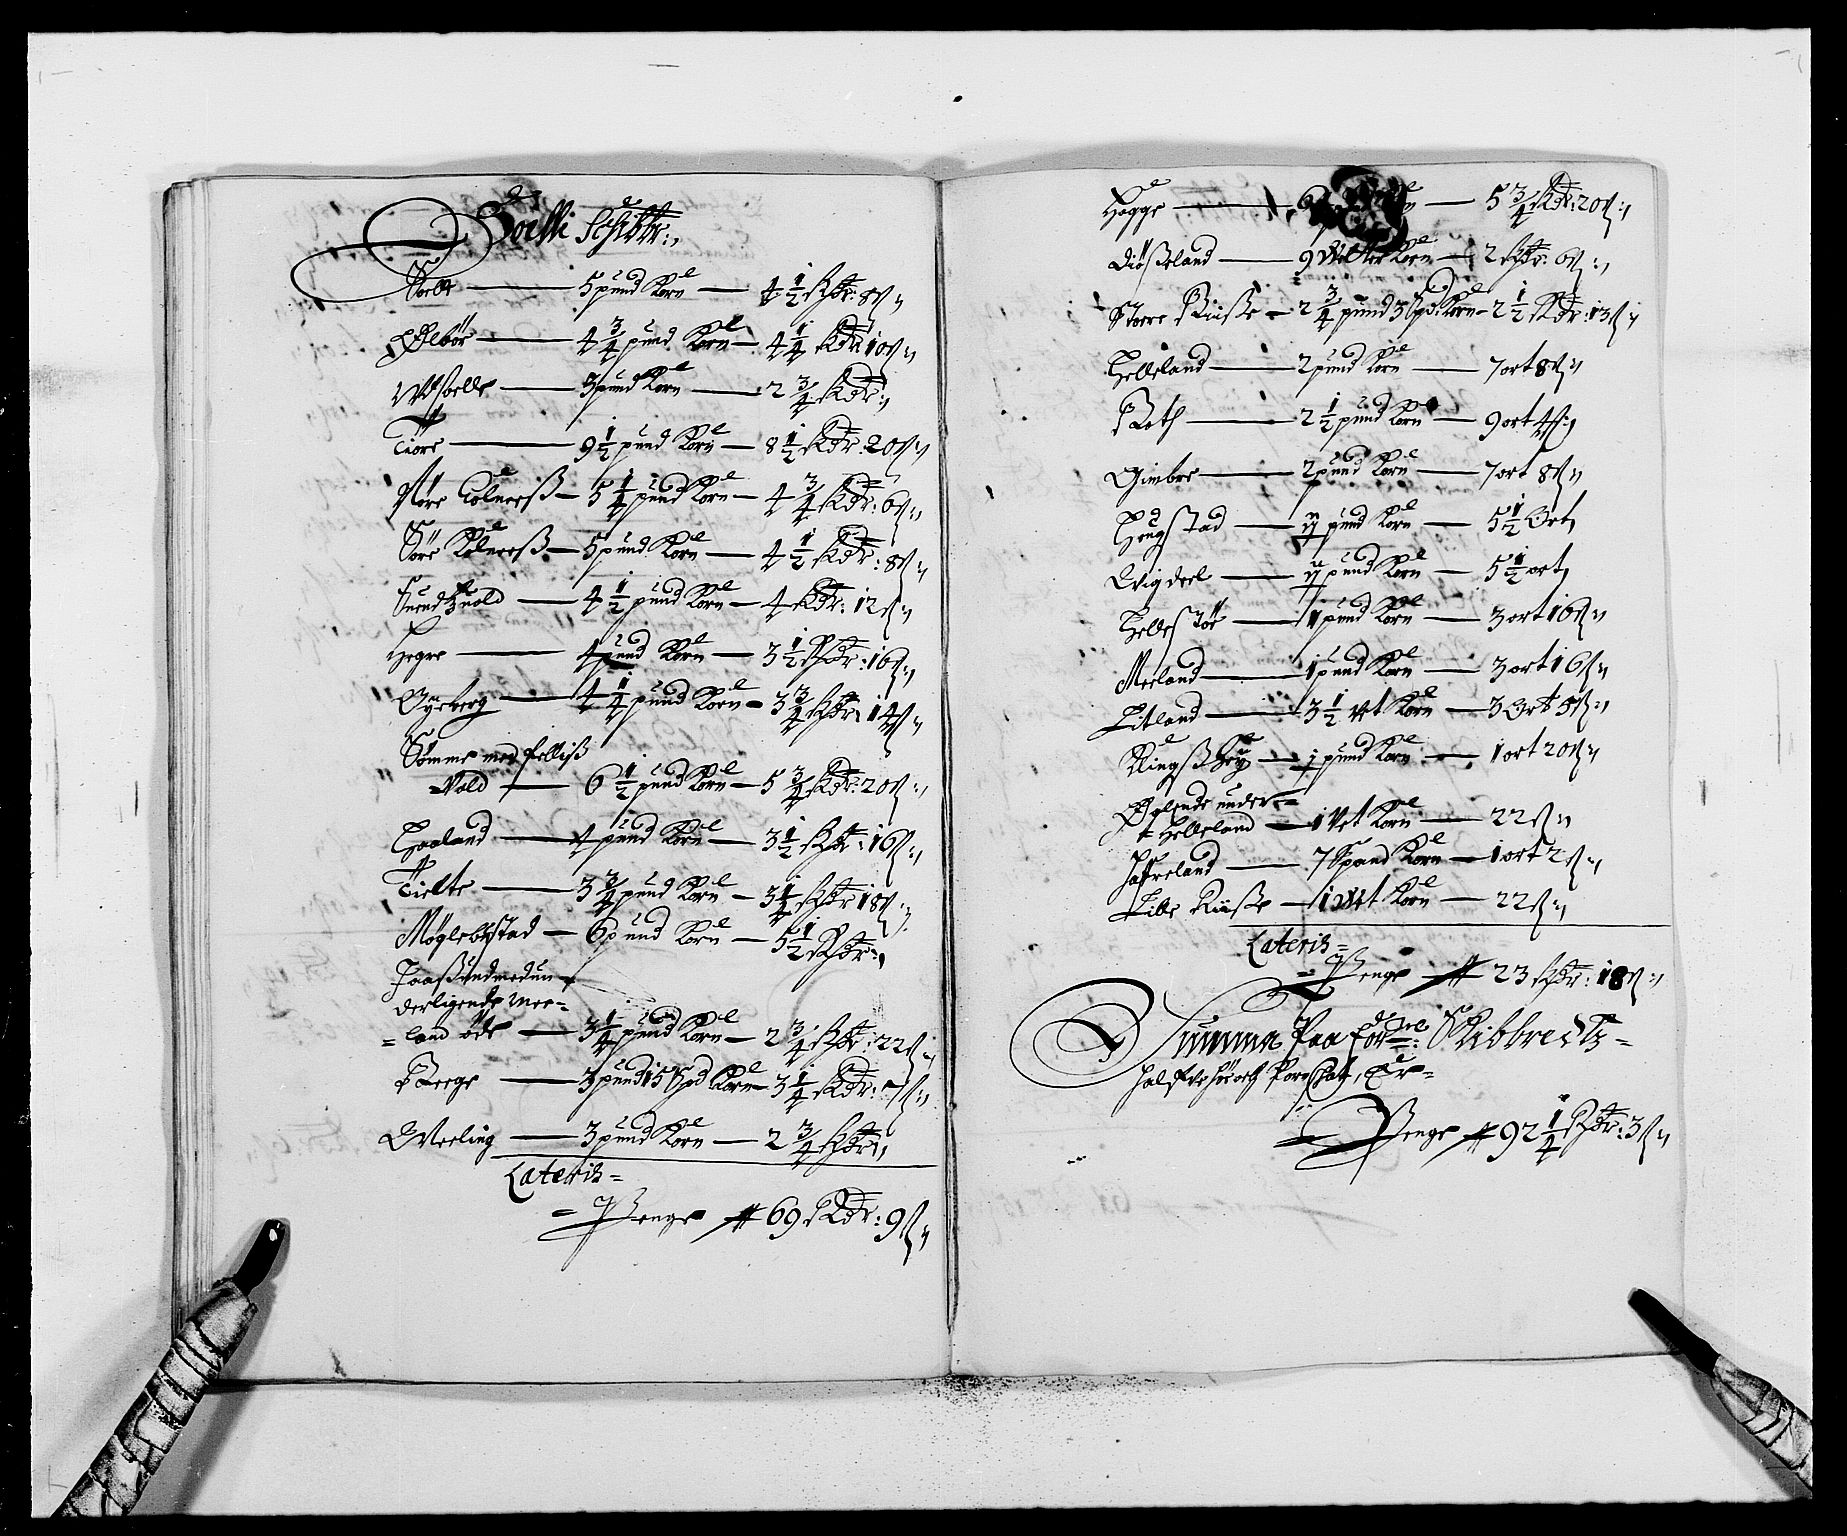 Soelle Schibbr:
Soele — 5 pund Korn — 4 1/2 Rdr: 8 ß
Ølbør — 4 3/4 pund Korn — 4 1/4 Rdr: 10 ß
Wdsoelle — 3 pund Korn — 2 3/4 Rdr:
Tiore — 9 1/2 pund Korn — 8 1/2 Rdr: 20 ß
Nore Colneeß — 5 1/4 pund Korn — 4 3/4 Rdr: 6 ß
Søre Kolneeß — 5 pund Korn — 4 1/2 Rdr: 8 ß
— 4 1/2 pund Korn — 4 Rdr: 12 ß
Hegre — 4 pund Korn — 3 1/2 Rdr: 16 ß
— 4 1/4 pund Korn — 3 3/4 Rdr: 14 ß
Sømme med
Vold — 6 1/2 pund Korn — 5 3/4 Rdr: 20 ß
Haaland — 4 pund Korn — 3 1/2 Rdr: 16 ß
Tielte — 3 3/4 pund Korn — 3 1/4 Rdr 18 ß
Møglebstad — 6 pund Korn — 5 1/2 Rdr:
med un-
derligende Mee-
land øde — 3 1/4 pund Korn — 2 3/4 Rdr: 22 ß
Reege — 3 pund 15 Spd Korn — 3 1/4 Rdr: 7 ß
Meeling — 3 pund Korn — 2 3/4 Rdr:
Lateris
Penge 69 Rdr: 9 ß
Hogge — 6 — 5 3/4 Rdr: 20 ß
Diøßeland — 9 Wetter Korn — 2 Rdr: 6 ß
Stoere Riiße — 2 3/4 pund 3 Spd: Korn — 2 1/2 Rdr: 13 ß
Helleland — 2 pund Korn — 7 ort 8 ß
Roth — 2 1/2 pund Korn — 9 ort 4 ß
Gimbre — 2 pund Korn — 7 ort 8 ß
Hougstad — pund Korn — 5 1/2 Ort
Wigdeel — pund Korn — 5 1/2 ort
Hellestøe — 1 pund Korn — 3 ort 16 ß
Meeland — 1 pund Korn — 3 ort 16 ß
Litland — 3 1/2 Wt Korn — 3 Ort 5 ß
— pund Korn — 1 ort 20 ß
Øglende under
Helleland — 1 Vet Korn — 22 ß
Hafreland — 7 Spand Korn — 1 ort 2 ß
Lille Riiße — 1 Wet Korn — 22 ß
Lateris
Penge 23 Rdr: 18 ß
Summa Paa forne: Skibbreidtz
Er
Penge 92 1/4 Rdr: 3 ß